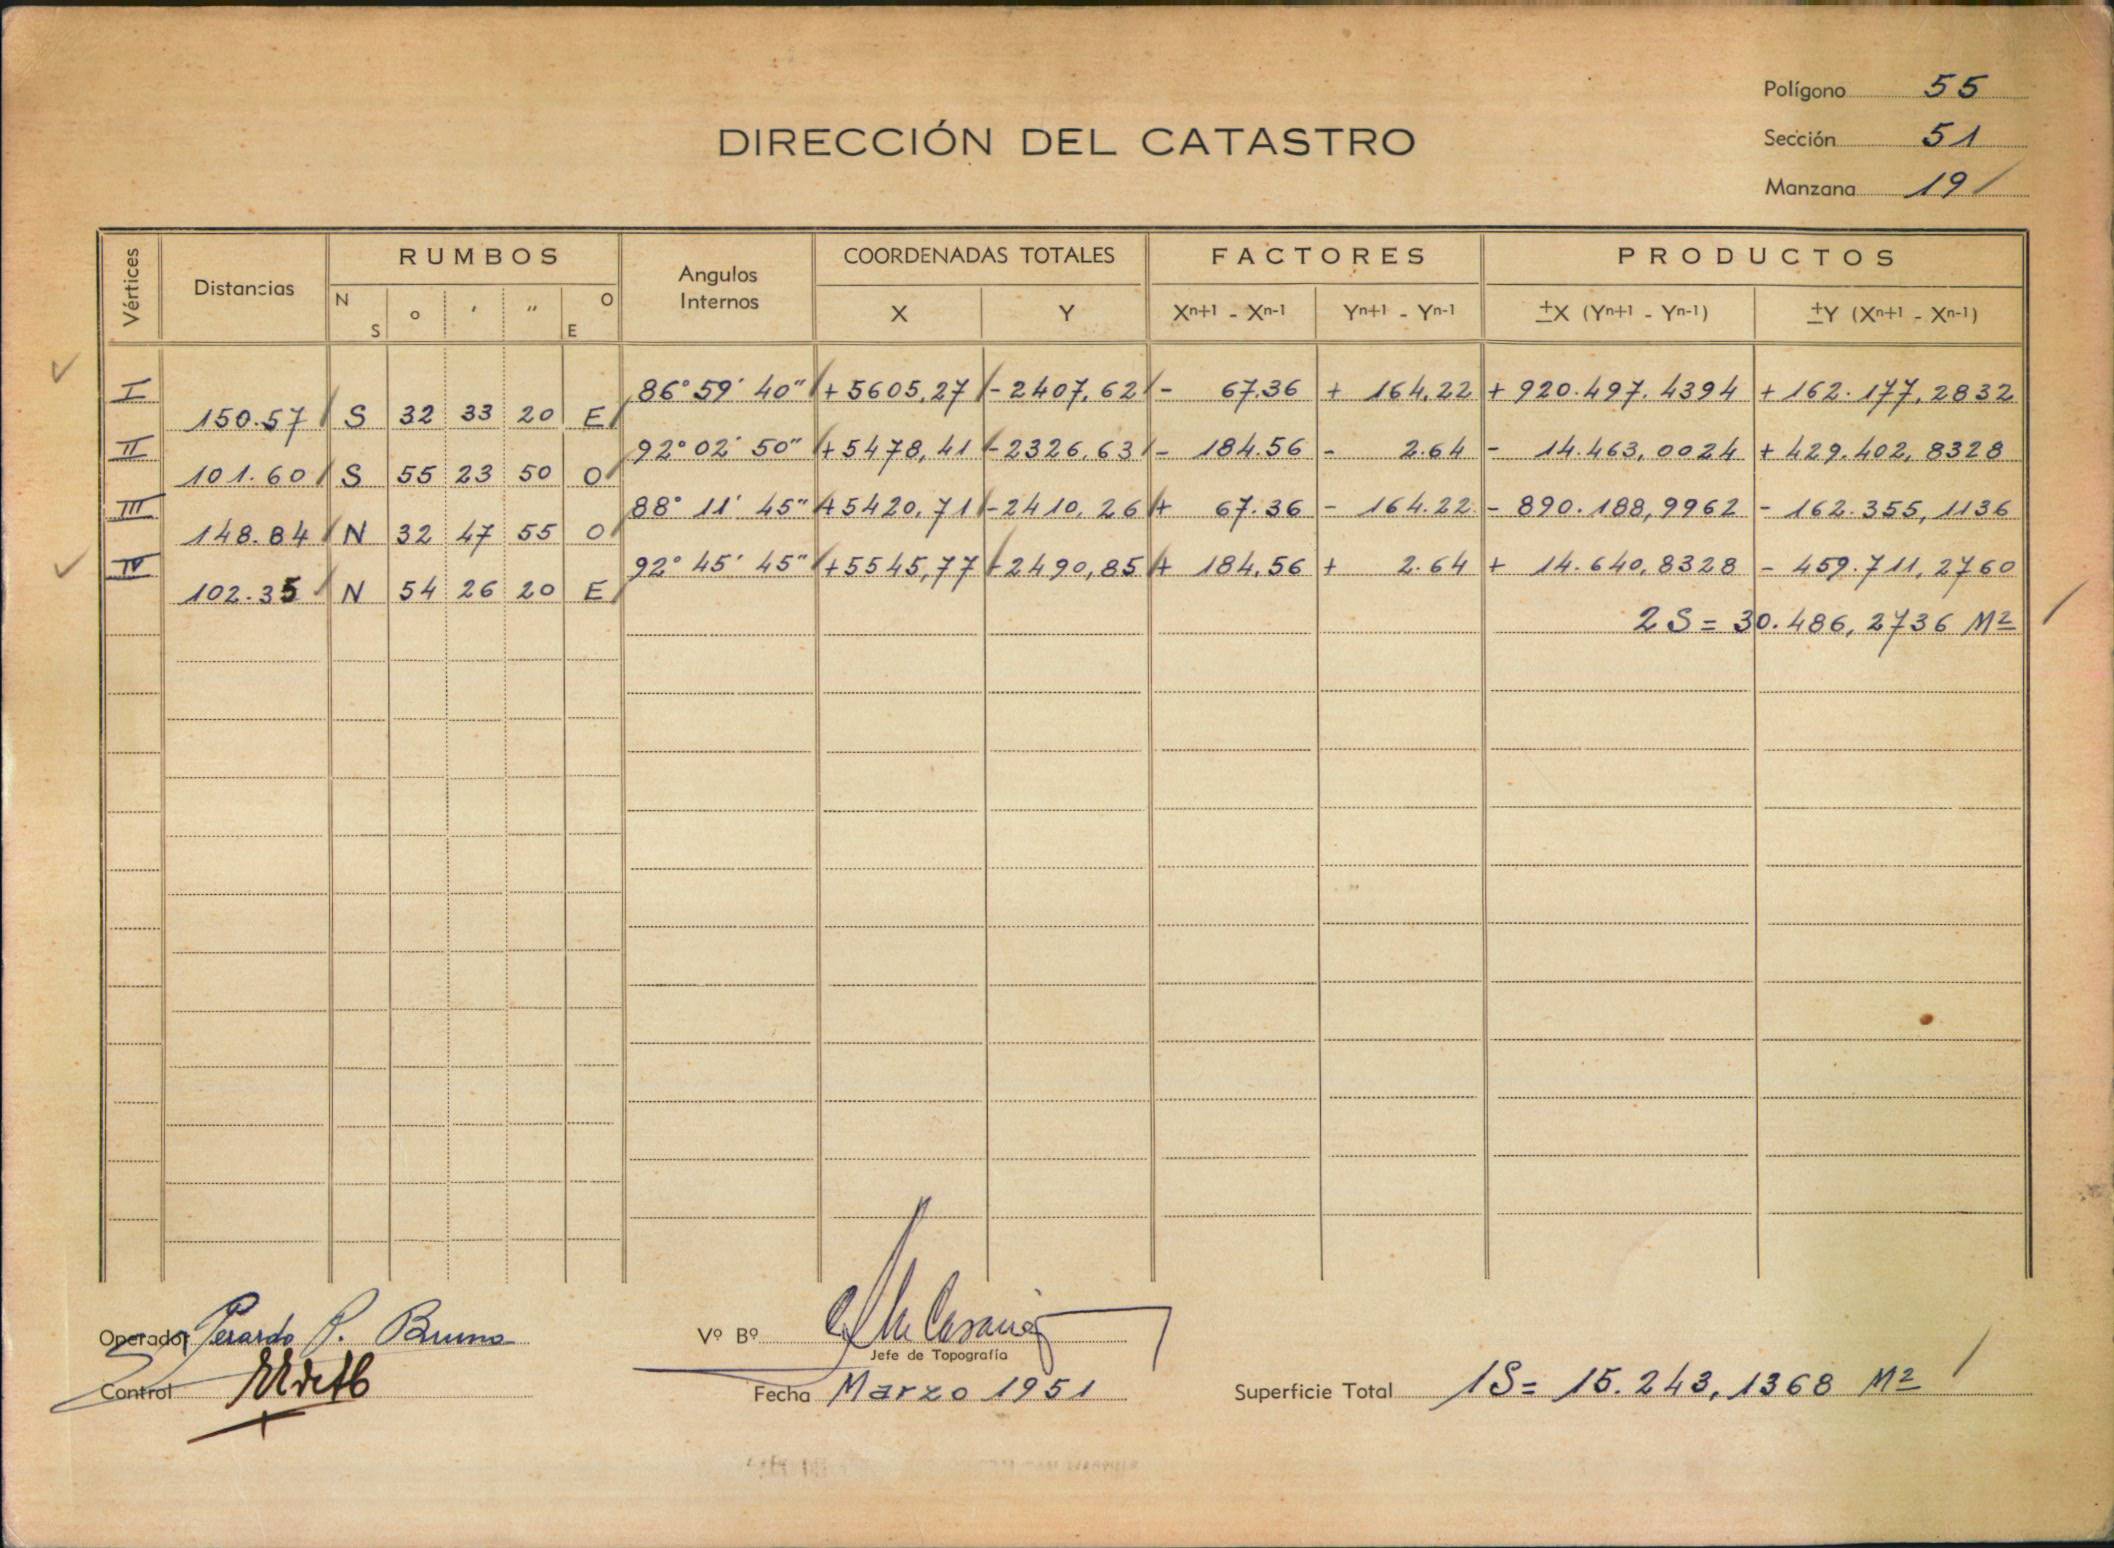 Polígono 55
DIRECCIÓN DEL CATASTRO
Sección 51
Manzana 19
Vértices Distancias RUMBOS Angulos Internos COORDENADAS TOTALES FACTORES PRODUCTOS
N S ° ' " O E X Y Xⁿ⁺¹ - Xⁿ⁻¹ Yⁿ⁺¹ - Yⁿ⁻¹ ±X (Yⁿ⁺¹ - Yⁿ⁻¹) ±Y (Xⁿ⁺¹ - Xⁿ⁻¹)
I 86° 59' 40" +5605,27 -2407,62 - 67.36 + 164,22 + 920.497.4394 + 162.177,2832
150.57 S 32 33 20 E
II 92° 02' 50" +5478,41 -2326,63 - 184.56 - 2.64 - 14.463,0024 + 429.402,8328
101.60 S 55 23 50 O
III 88° 11' 45" +5420,71 -2410,26 + 67.36 - 164.22 - 890.188,9962 - 162.355,1136
148.84 N 32 47 55 O
IV 92° 45' 45" +5545,77 -2490,85 + 184,56 + 2.64 + 14.640,8328 - 459.711,2760
102.35 N 54 26 20 E
2S = 30.486,2736 M²
Operador P. Bruno
Vº Bº
Jefe de Topografía
Control
Fecha Marzo 1951
Superficie Total 1S= 15.243,1368 M²